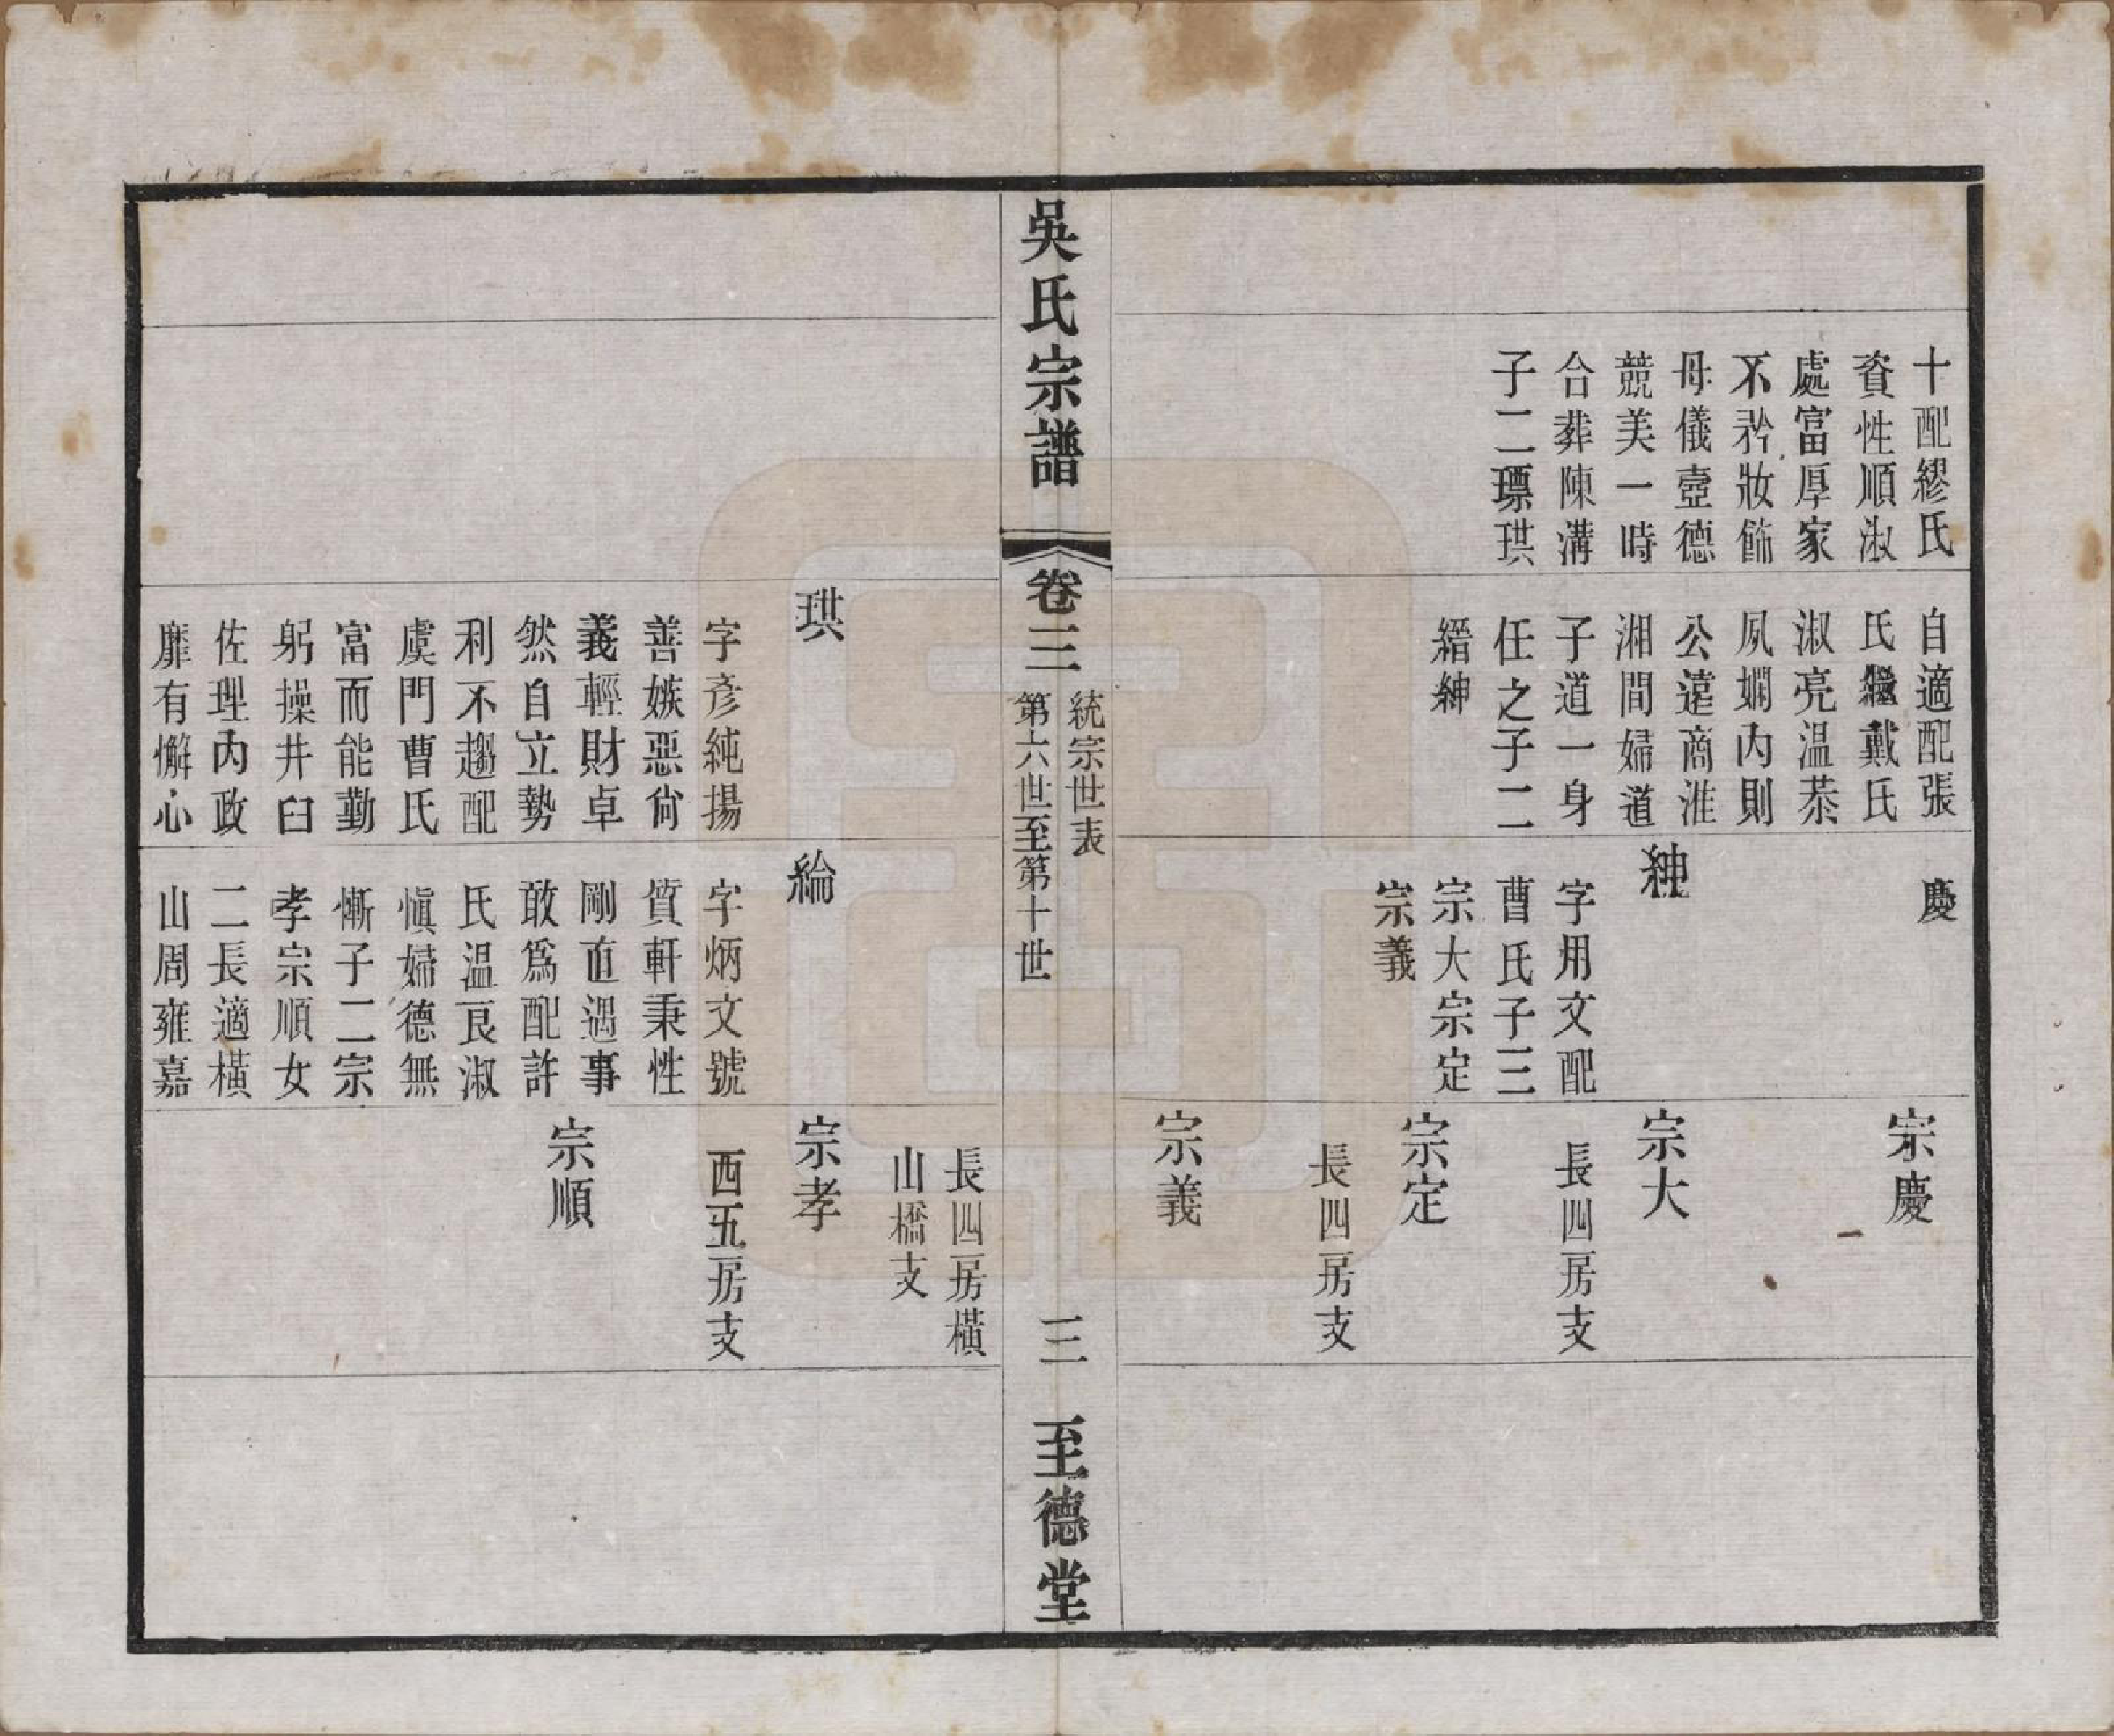 十配繆氏
資性順淑
處富厚家
不矜妝飾
母儀壼德
競美一時
合葬陳溝
子二瑮珙
自適配張
氏繼戴氏
淑亮溫恭
夙嫻內則
公遠商淮
湘間婦道
子道一身
任之子二
縉紳
慶
紳
字用文配
曹氏子三
宗大宗定
宗義
宗慶
宗大
長四房支
宗定
長四房支
宗義
吳氏宗譜
卷三
統宗世表
第六世至第十世
三
至德堂
珙
字彥純揚
善嫉惡尙
義輕財卓
然自立勢
利不趨配
虞門曹氏
富而能勤
躬操井臼
佐理內政
靡有懈心
綸
字炳文號
質軒秉性
剛直遇事
敢爲配許
氏溫良淑
愼婦德無
慚子二宗
孝宗順女
二長適橫
山周雍嘉
長四房橫
山橋支
宗孝
西五房支
宗順